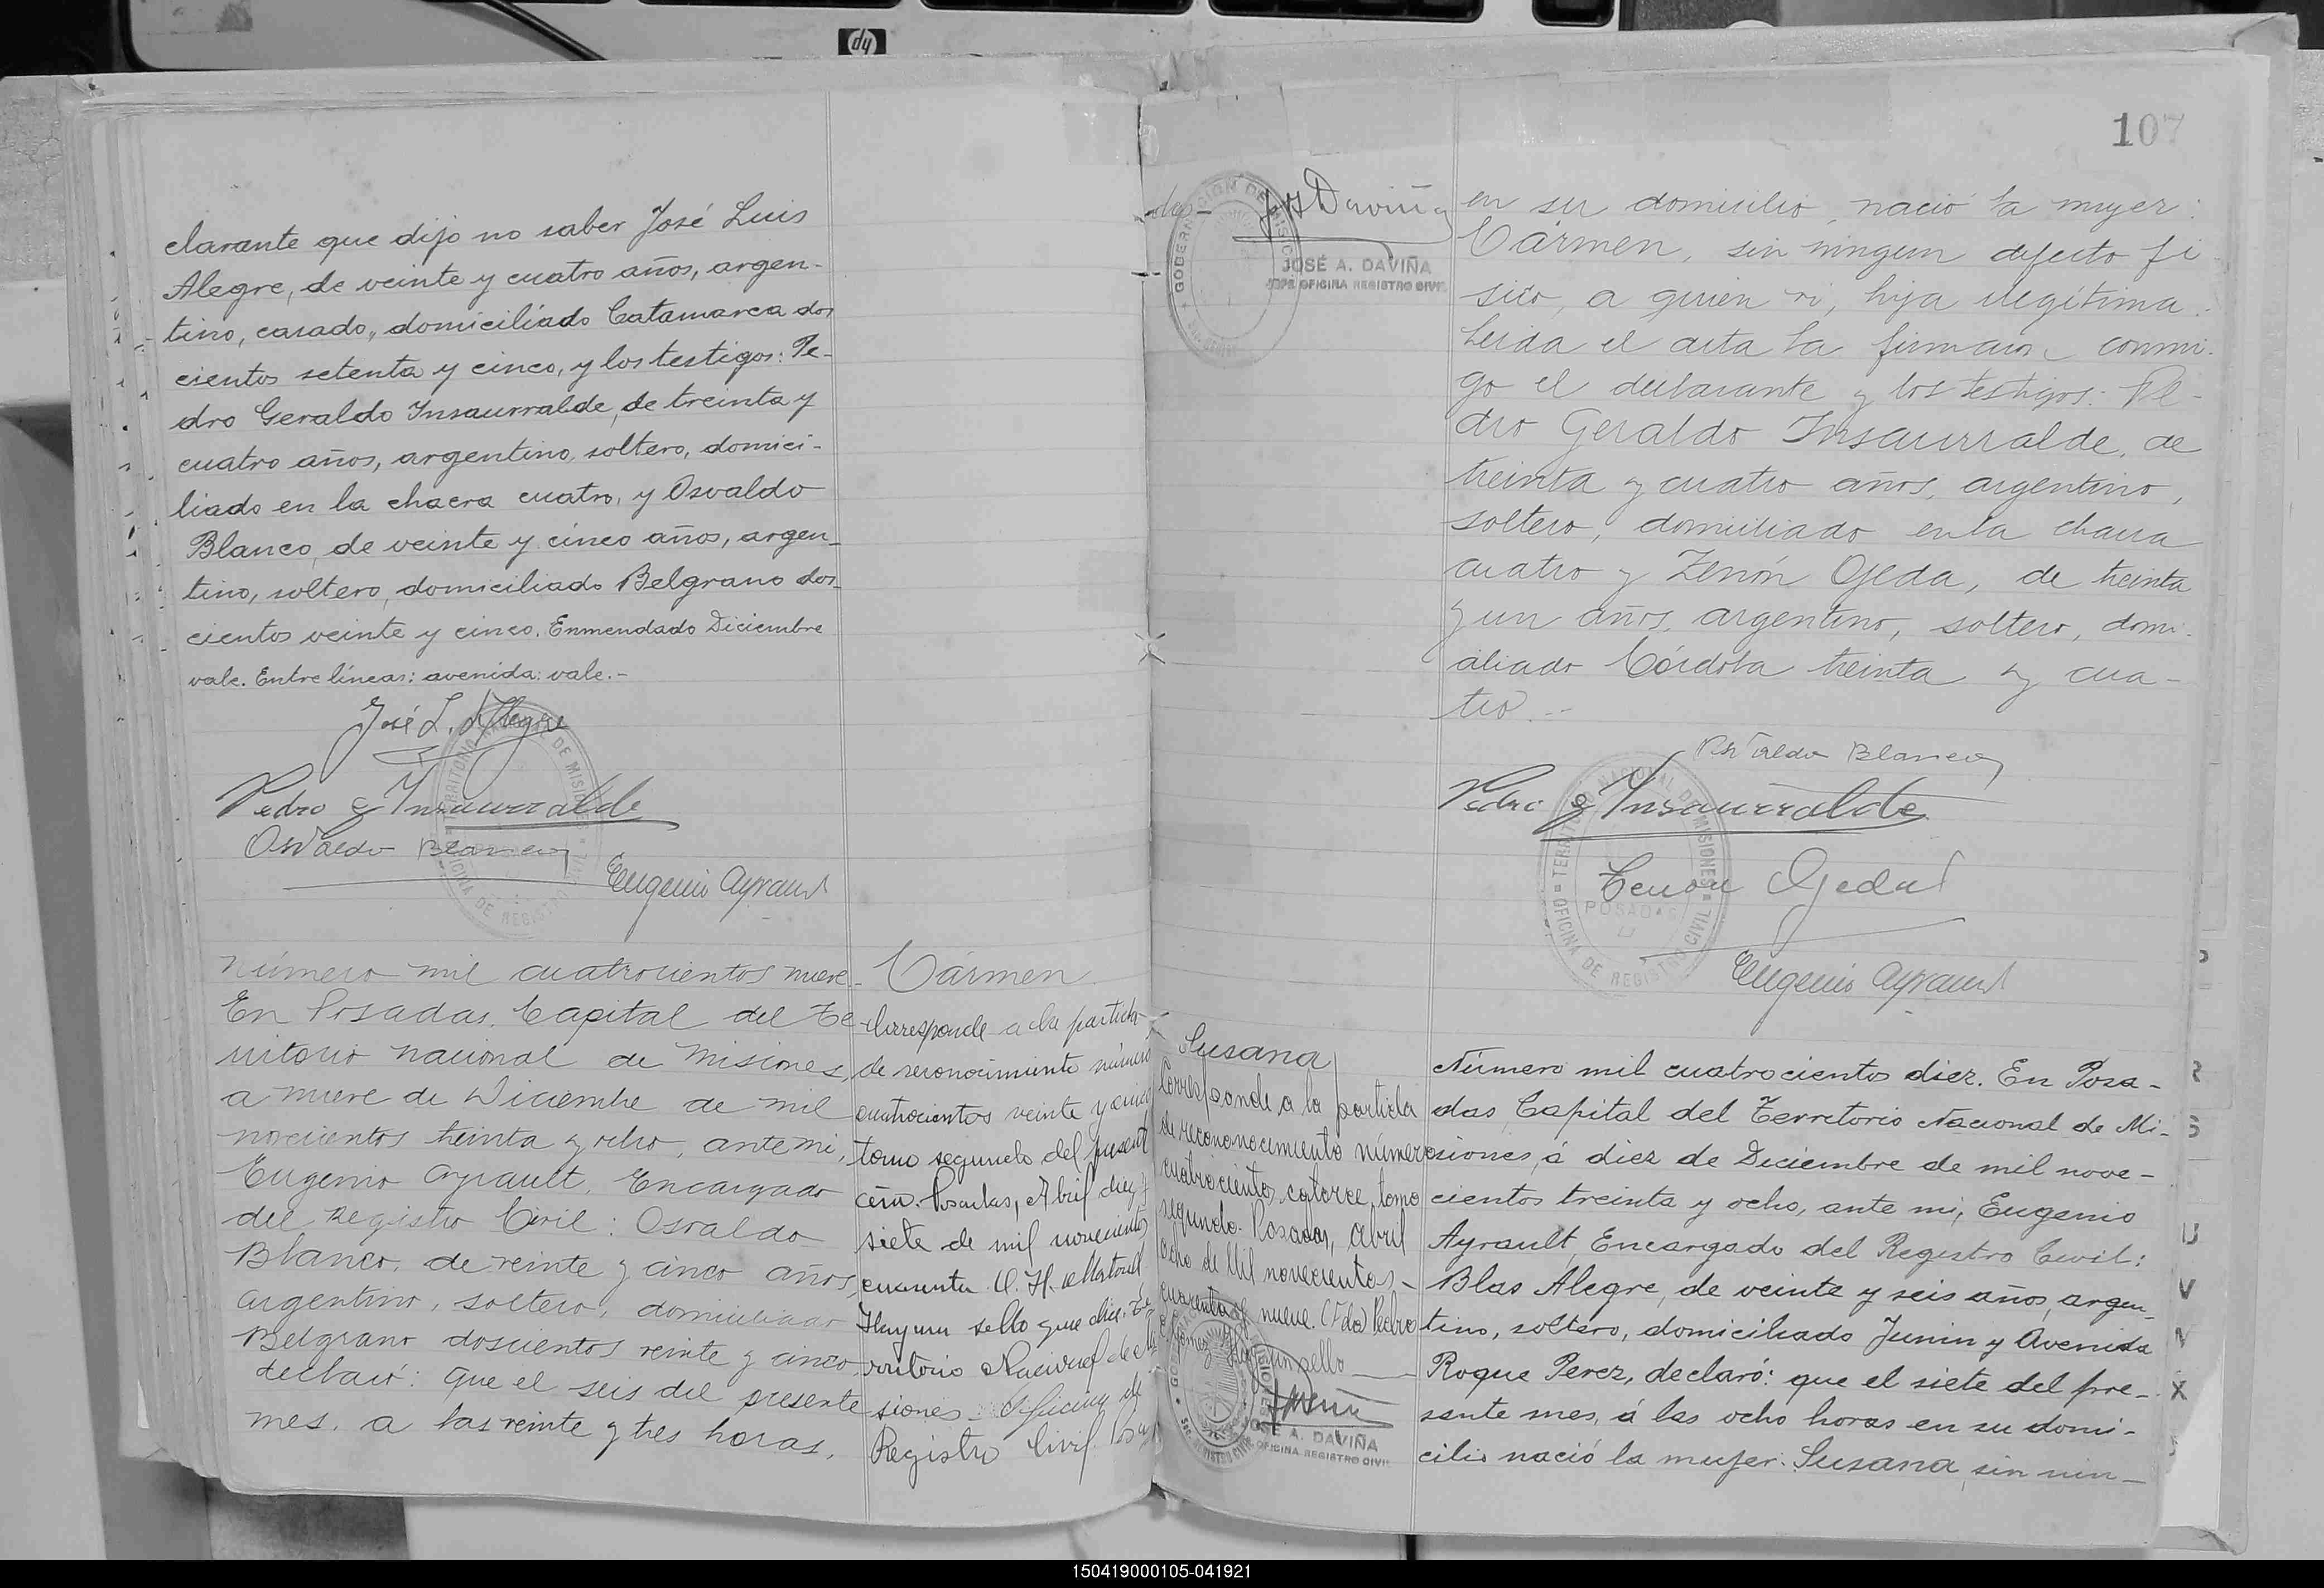 clarante que dijo no saber José Luis
Alegre, de veinte y cuatro años, argen-
tino, casado, domiciliado Catamarca dos
cientos setenta y cinco, y los testigos: Pe-
dro Geraldo Insaurralde, de treinta y
cuatro años, argentino, soltero, domici-
liado en la chacra cuatro, y Osvaldo
Blanco, de veinte y cinco años, argen-
tino, soltero, domiciliado Belgrano dos-
cientos veinte y cinco. Enmendado Diciembre
vale. Entre líneas: avenida: vale.-
José L. Alegre
Pedro G Insaurralde
Osvaldo Blanco
Eugenio Ayrault
Número mil cuatrocientos nueve.
En Posadas, Capital del Te-
rritorio Nacional de Misiones,
a nueve de Diciembre de mil
novecientos treinta y ocho, ante mi,
Eugenio Ayrault, Encargado
del Registro Civil: Osvaldo
Blanco, de veinte y cinco años,
argentino, soltero, domiciliado
Belgrano doscientos veinte y cinco
declaró: que el seis del presente
mes, a las veinte y tres horas,
Cármen
Corresponde a la partida
de reconocimiento número
cuatrocientos veinte y cinco
tomo segundo del present
Posadas, Abril diez y
siete de mil novecientos
cuarenta
Hay un sello que dice: Te
rritorio Nacional de Mi
siones - Oficina de
Registro Civil. Posa
das-
GOBERNACION DE MISIONES
JOSÉ A. DAVIÑA
JEFE OFICINA REGISTRO CIVIL
107
en su domicilio, nació la mujer:
Cármen, sin ningun defecto fi
sico, a quien vi, hija ilegítima.
Leida el acta la firmaron conmi-
go el declarante y los testigos: Pe-
dro Geraldo Insaurralde, de
treinta y cuatro años, argentino,
soltero, domiciliado en la chacra
cuatro y Zenón Ojeda, de treinta
y un años, argentino, soltero, domi-
ciliado Córdoba treinta y cua-
tro.--
Osvaldo Blanco
Pedro G Insaurralde
Cenon Ojeda
Eugenio Ayrault
TERRITORIO NACIONAL DE MISIONES
OFICINA DE REGISTRO CIVIL
POSADAS
Susana
Corresponde a la partida
de recononocimiento número
cuatrocientos catorce, tomo
segundo. Posadas, Abril
ocho de Mil novecientos-
cuarenta y nueve. (Fdo) Pedro
Gomez Hay un sello
JOSÉ A. DAVIÑA
JEFE OFICINA REGISTRO CIVIL
Número mil cuatrocientos diez. En Posa-
das Capital del Territorio Nacional de Mi-
siones, á diez de Diciembre de mil nove-
cientos treinta y ocho, ante mi, Eugenio
Ayrault, Encargado del Registro Civil:
Blas Alegre, de veinte y seis años, argen-
tino, soltero, domiciliado Junin y Avenida
Roque Perez, declaró: que el siete del pre-
sente mes, á las ocho horas en su domi-
cilio nació la mujer: Susana, sin nin-
150419000105-041921